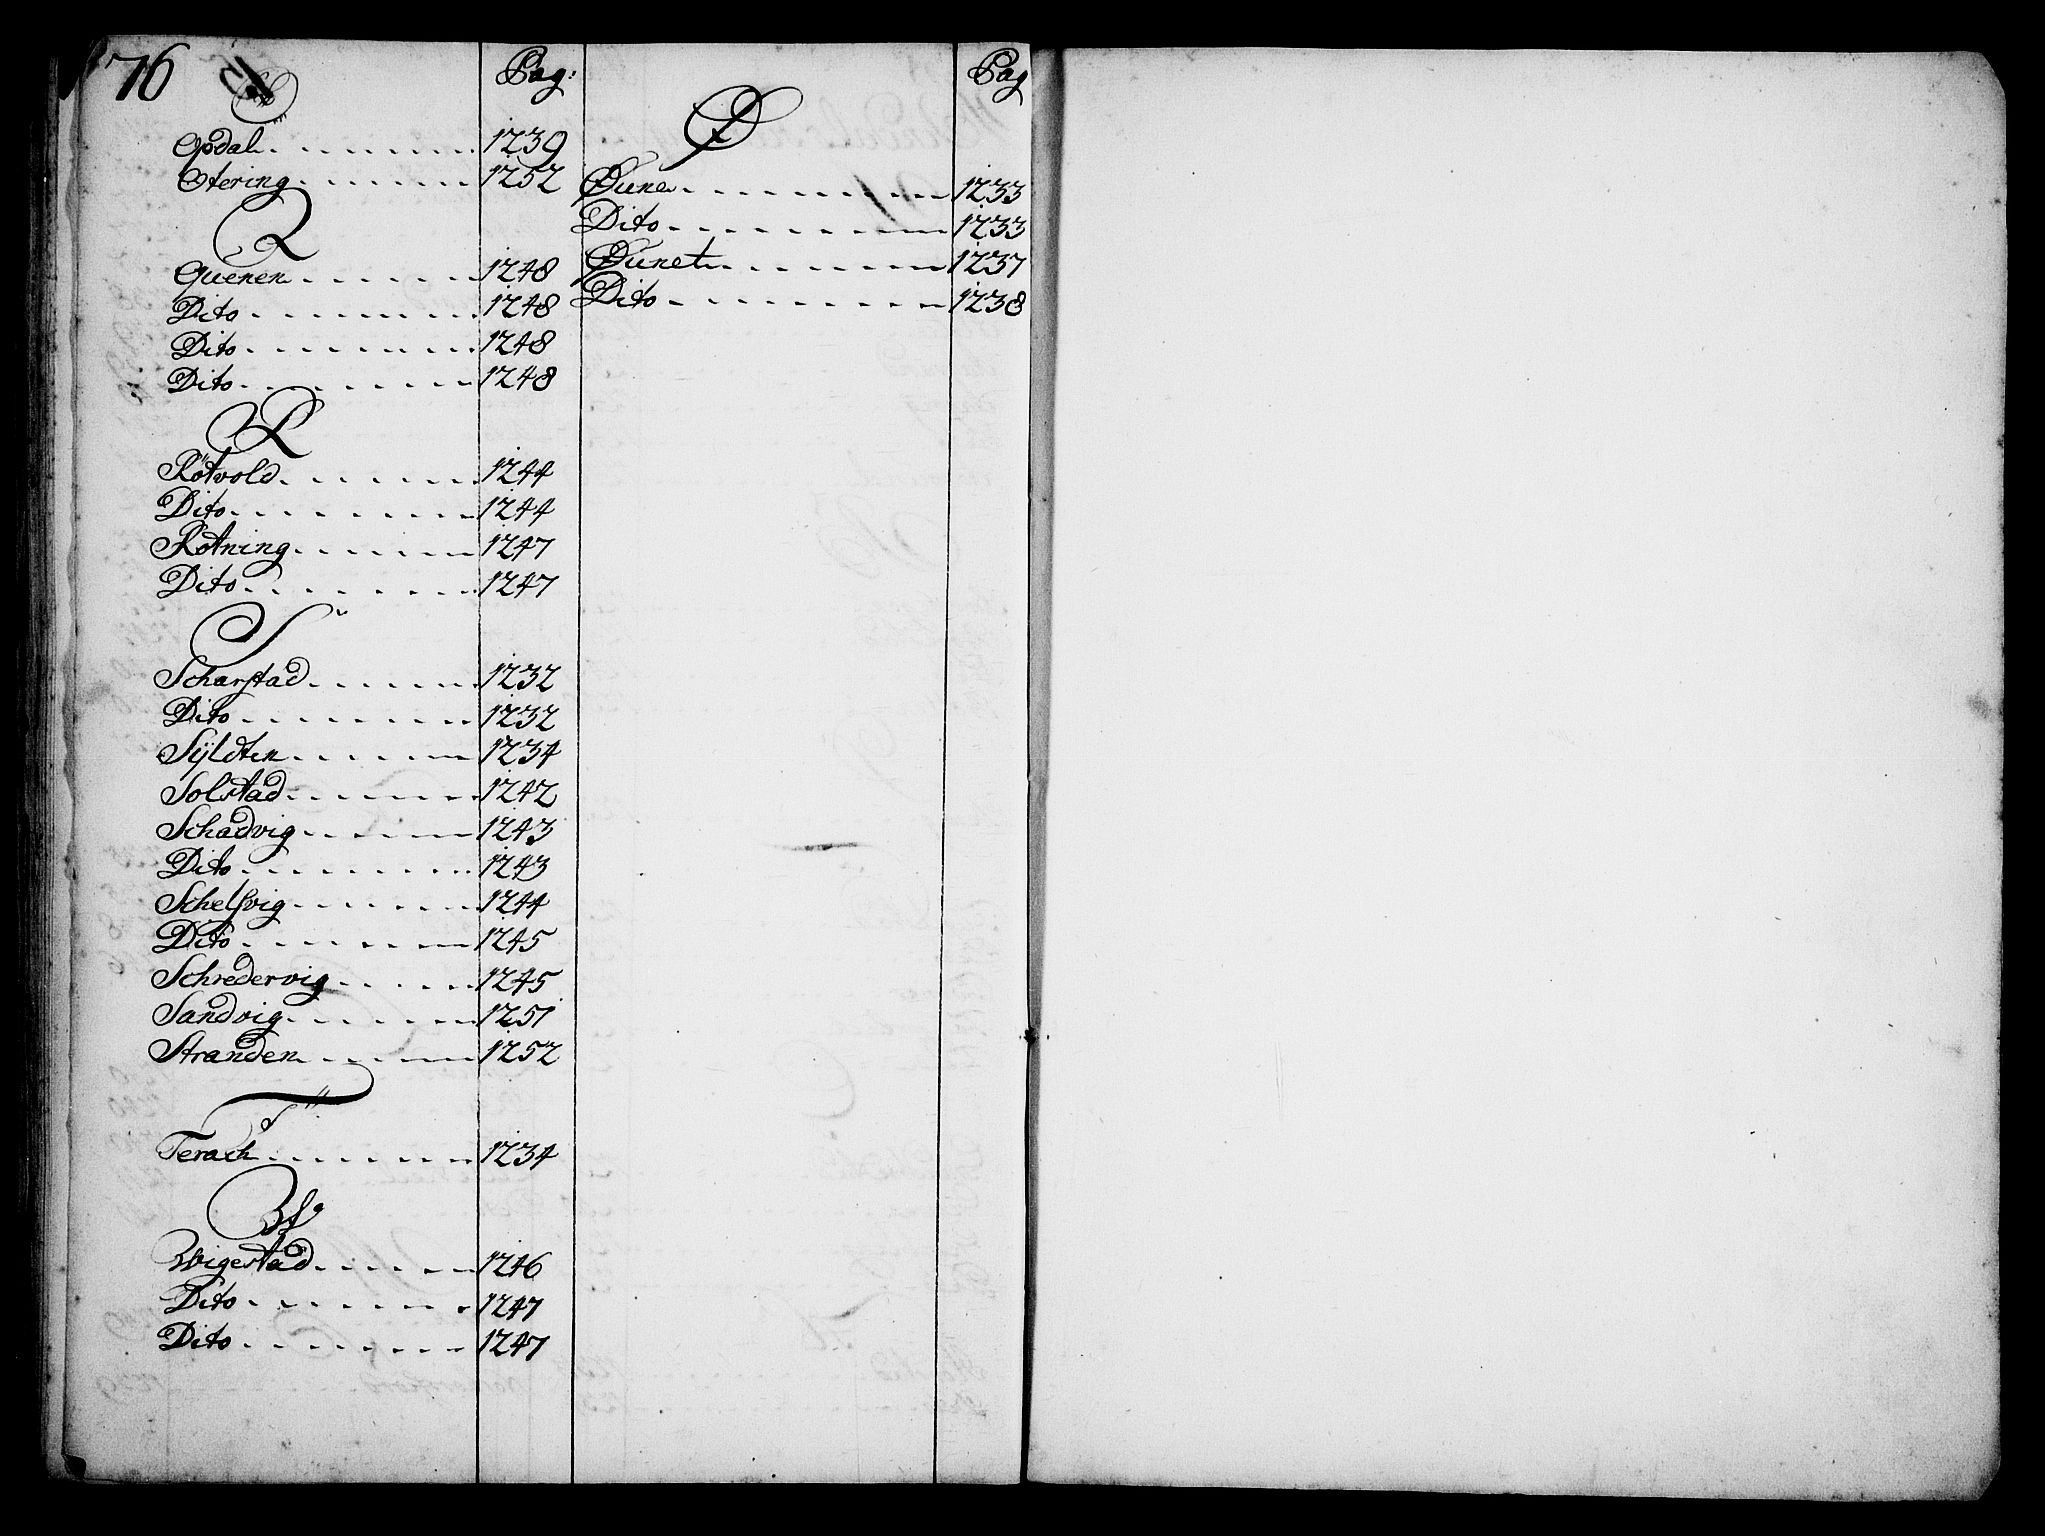 76
O
Pag:
Opdal 1239
Otering 1252
Q
Quenen 1248
Dito 1248
Dito 1248
Dito 1248
R
Røtvold 1244
Dito 1244
Røtning 1247
Dito 1247
S
Scharstad 1232
Dito 1232
Sÿldten 1234
Solstad 1242
Schadvig 1243
Dito 1243
Schelsvig 1244
Dito 1245
Schredervig 1245
Sandvig 1251
Stranden 1252
T
Terach 1234
W
Wigestad 1246
Dito 1247
Dito 1247
Pag
Ø
Øune 1233
Dito 1233
Øunet 1237
Dito 1238